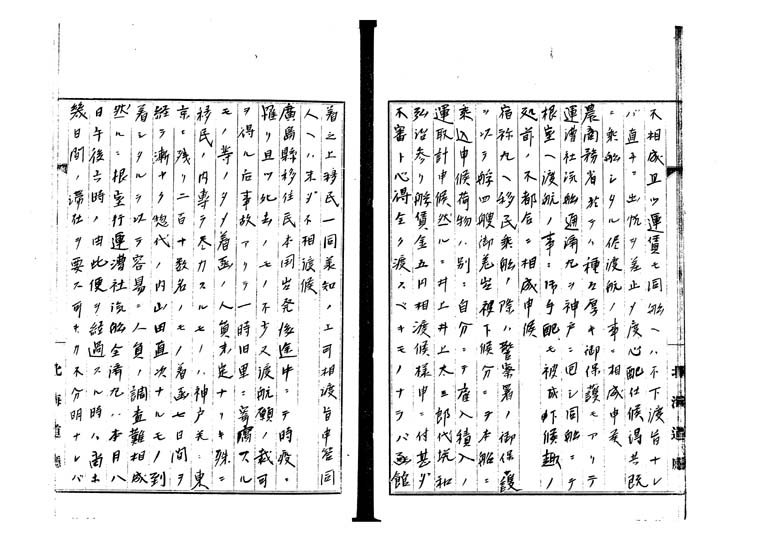 不相成且ツ運賃モ同船ヘハ不下渡旨ナレ
バ直チニ出帆ヲ差止ヲ度心配仕候得共既
ニ乗船シタル他渡航ノ事ニ相成申候
農商務省於テハ種々厚キ御保護モアリテ
運漕社汽船通済丸ヲ神戸ニ回シ同船ニテ
根室ヘ渡航ノ事ニ御手配モ被成下候趣ノ
処前ノ不都合ニ相成申候
宿祢丸ヘ移民乗船ノ際ハ警察署ノ御保護
ヲ以テ艀四艘御差出被下候分ニヲ本船ニ
乗込申候荷物ハ別ニ自分ニテ雇入積入ノ
運取計申候然ルニ井上井上太三郎代坑和
弘治参リ艀賃金五円相渡候様申ニ付甚ダ
不審ト心得全ク渡スベキモノナラバ函館
着之上移民一同義知ノ上可相渡旨申答同
人ヘハ未ダ不相渡候
廣島縣移住民本国出発後途中ニテ時疫ニ
罹リ且ツ死去ノモノ不少又渡航願ノ裁可
ヲ得ル后事故アリテ一時旧里ニ帰
モノ等ノタメ着函ノ人員未定ナリキ殊ニ
移民ノ内専ラ尽力スルモノハ神戸又ハ東
京ニ残リ二百十数名ノモノ着函七日間ヲ
経テ漸ヤク惣代ノ内山田直次ナルモノ到
着シタルヲ以テ容易ニ人員ノ調査難相成
然ルニ根室行運漕社汽船全済丸ハ本月八
日午後六時ノ由此便ヲ経過スル時ハ尚ホ
幾日間ノ滞在ヲ要ス可キカ不分明ナレバ
北海道廳